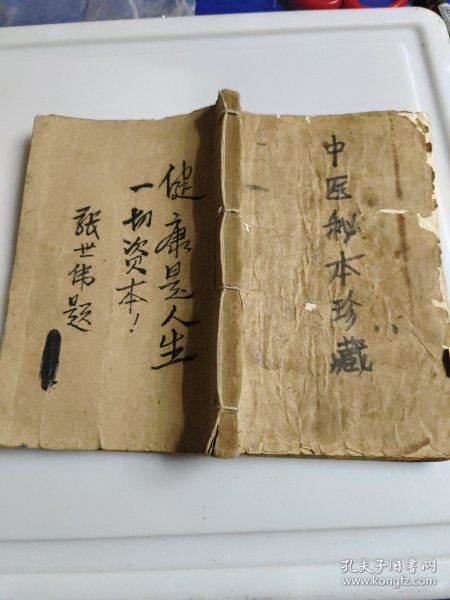 中医秘本珍藏
健康是人生
一切资本！
张世伟题
孔夫子旧书网
www.kongfz.com